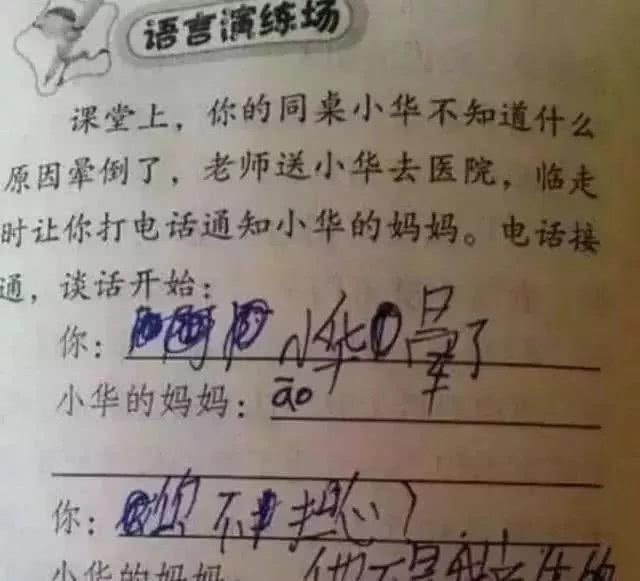 语言演练场
课堂上，你的同桌小华不知道什么
原因晕倒了，老师送小华去医院，临走
时让你打电话通知小华的妈妈。电话接
通，谈话开始：
你：小华晕了
小华的妈妈：āo
你：你不担心？
小华的妈妈：他不是我亲生的